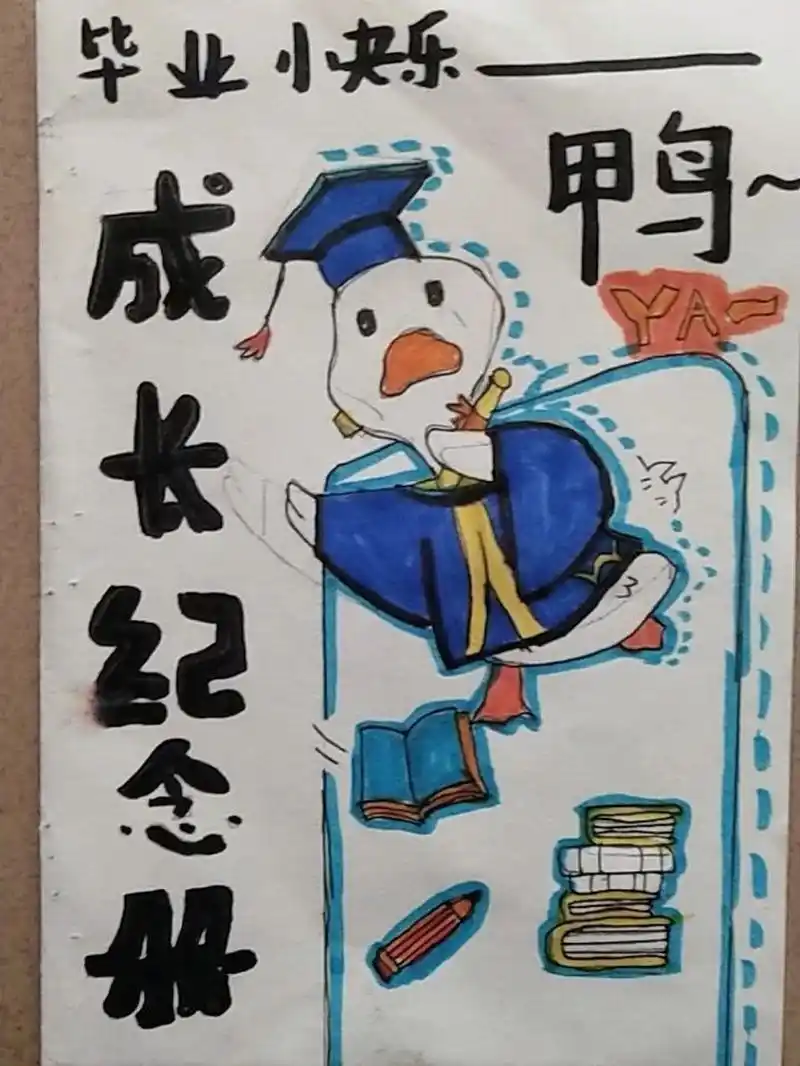 毕业小快乐——
鸭~
YA-
成长纪念册